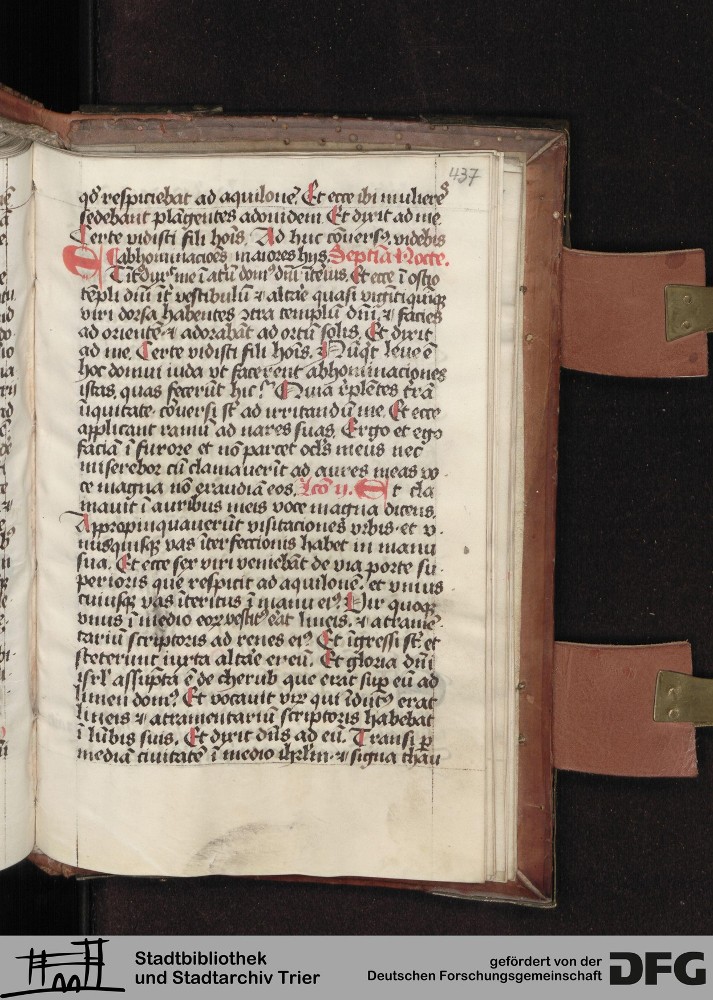 437
qd' respiciebat ad aquilonē. Et ecce ibi mulieres
sedebant plāgentes adonidem Et dixit ad me
Certe vidisti fili hoīs. Ad huc cōuersꝰ videbis
abhominacioēs maiores hijs. Septīa Nocte.
Et ītrodux' me ī atriū domꝰ dn̄i īterius. Et ecce ī ostio
tēpli dn̄i īt' vestibulū ⁊ altāe quasi vigītiquīqꝫ
viri dorsa habentes 9tra templū dn̄i ⁊ facies
ad orientē ⁊ adorabāt ad ortū solis. Et dixit
ad me. Certe vidisti fili hoīs. Nūqt leue ē
hoc domui iuda vt facerent abhominaciones
istas, quas fecerūt hic? Quia r̄plētes t'rā
iniquitate cōuersi st̄ ad irritandū me. Et ecce
applicant ramū ad nares suas. Ergo et ego
faciā ī furore et nō parcet ocl's meus nec
miserebor cū clamauerīt ad aures meas vo
ce magna nō exaudiā eos. Lcō ij. Et cla
mauit ī auribus meis voce magna dicens.
Appropinquauerūt visitaciones vrbis et v
nusquisqꝫ vas īterfectionis habet in manu
sua. Et ecce sex viri veniebāt de via porte su
perioris que respicit ad aquilonē. et vnius
cuiusqꝫ vas īteritus ī manu eiꝰ. Vir quoqꝫ
vnus ī medio eoꝝ vestitꝰ erat lineis. ⁊ atramē
tariū scriptoris ad renes eiꝰ Et īgressi st̄. et
steterunt iuxta altāe ereū. Et gloria dn̄i
isrl' assūpta ē de cherub que erat sup eū ad
limen domꝰ Et vocauit viꝝ qui īdutꝰ erat
lineis ⁊ atramentariū scriptoris habebat
ī lūbis suis. Et dixit dn̄s ad eū. Transi p
mediā ciuitatē ī medio ihrl'm ⁊ signa thau
Stadtbibliothek
und Stadtarchiv Trier
gefördert von der
Deutschen Forschungsgemeinschaft
DFG